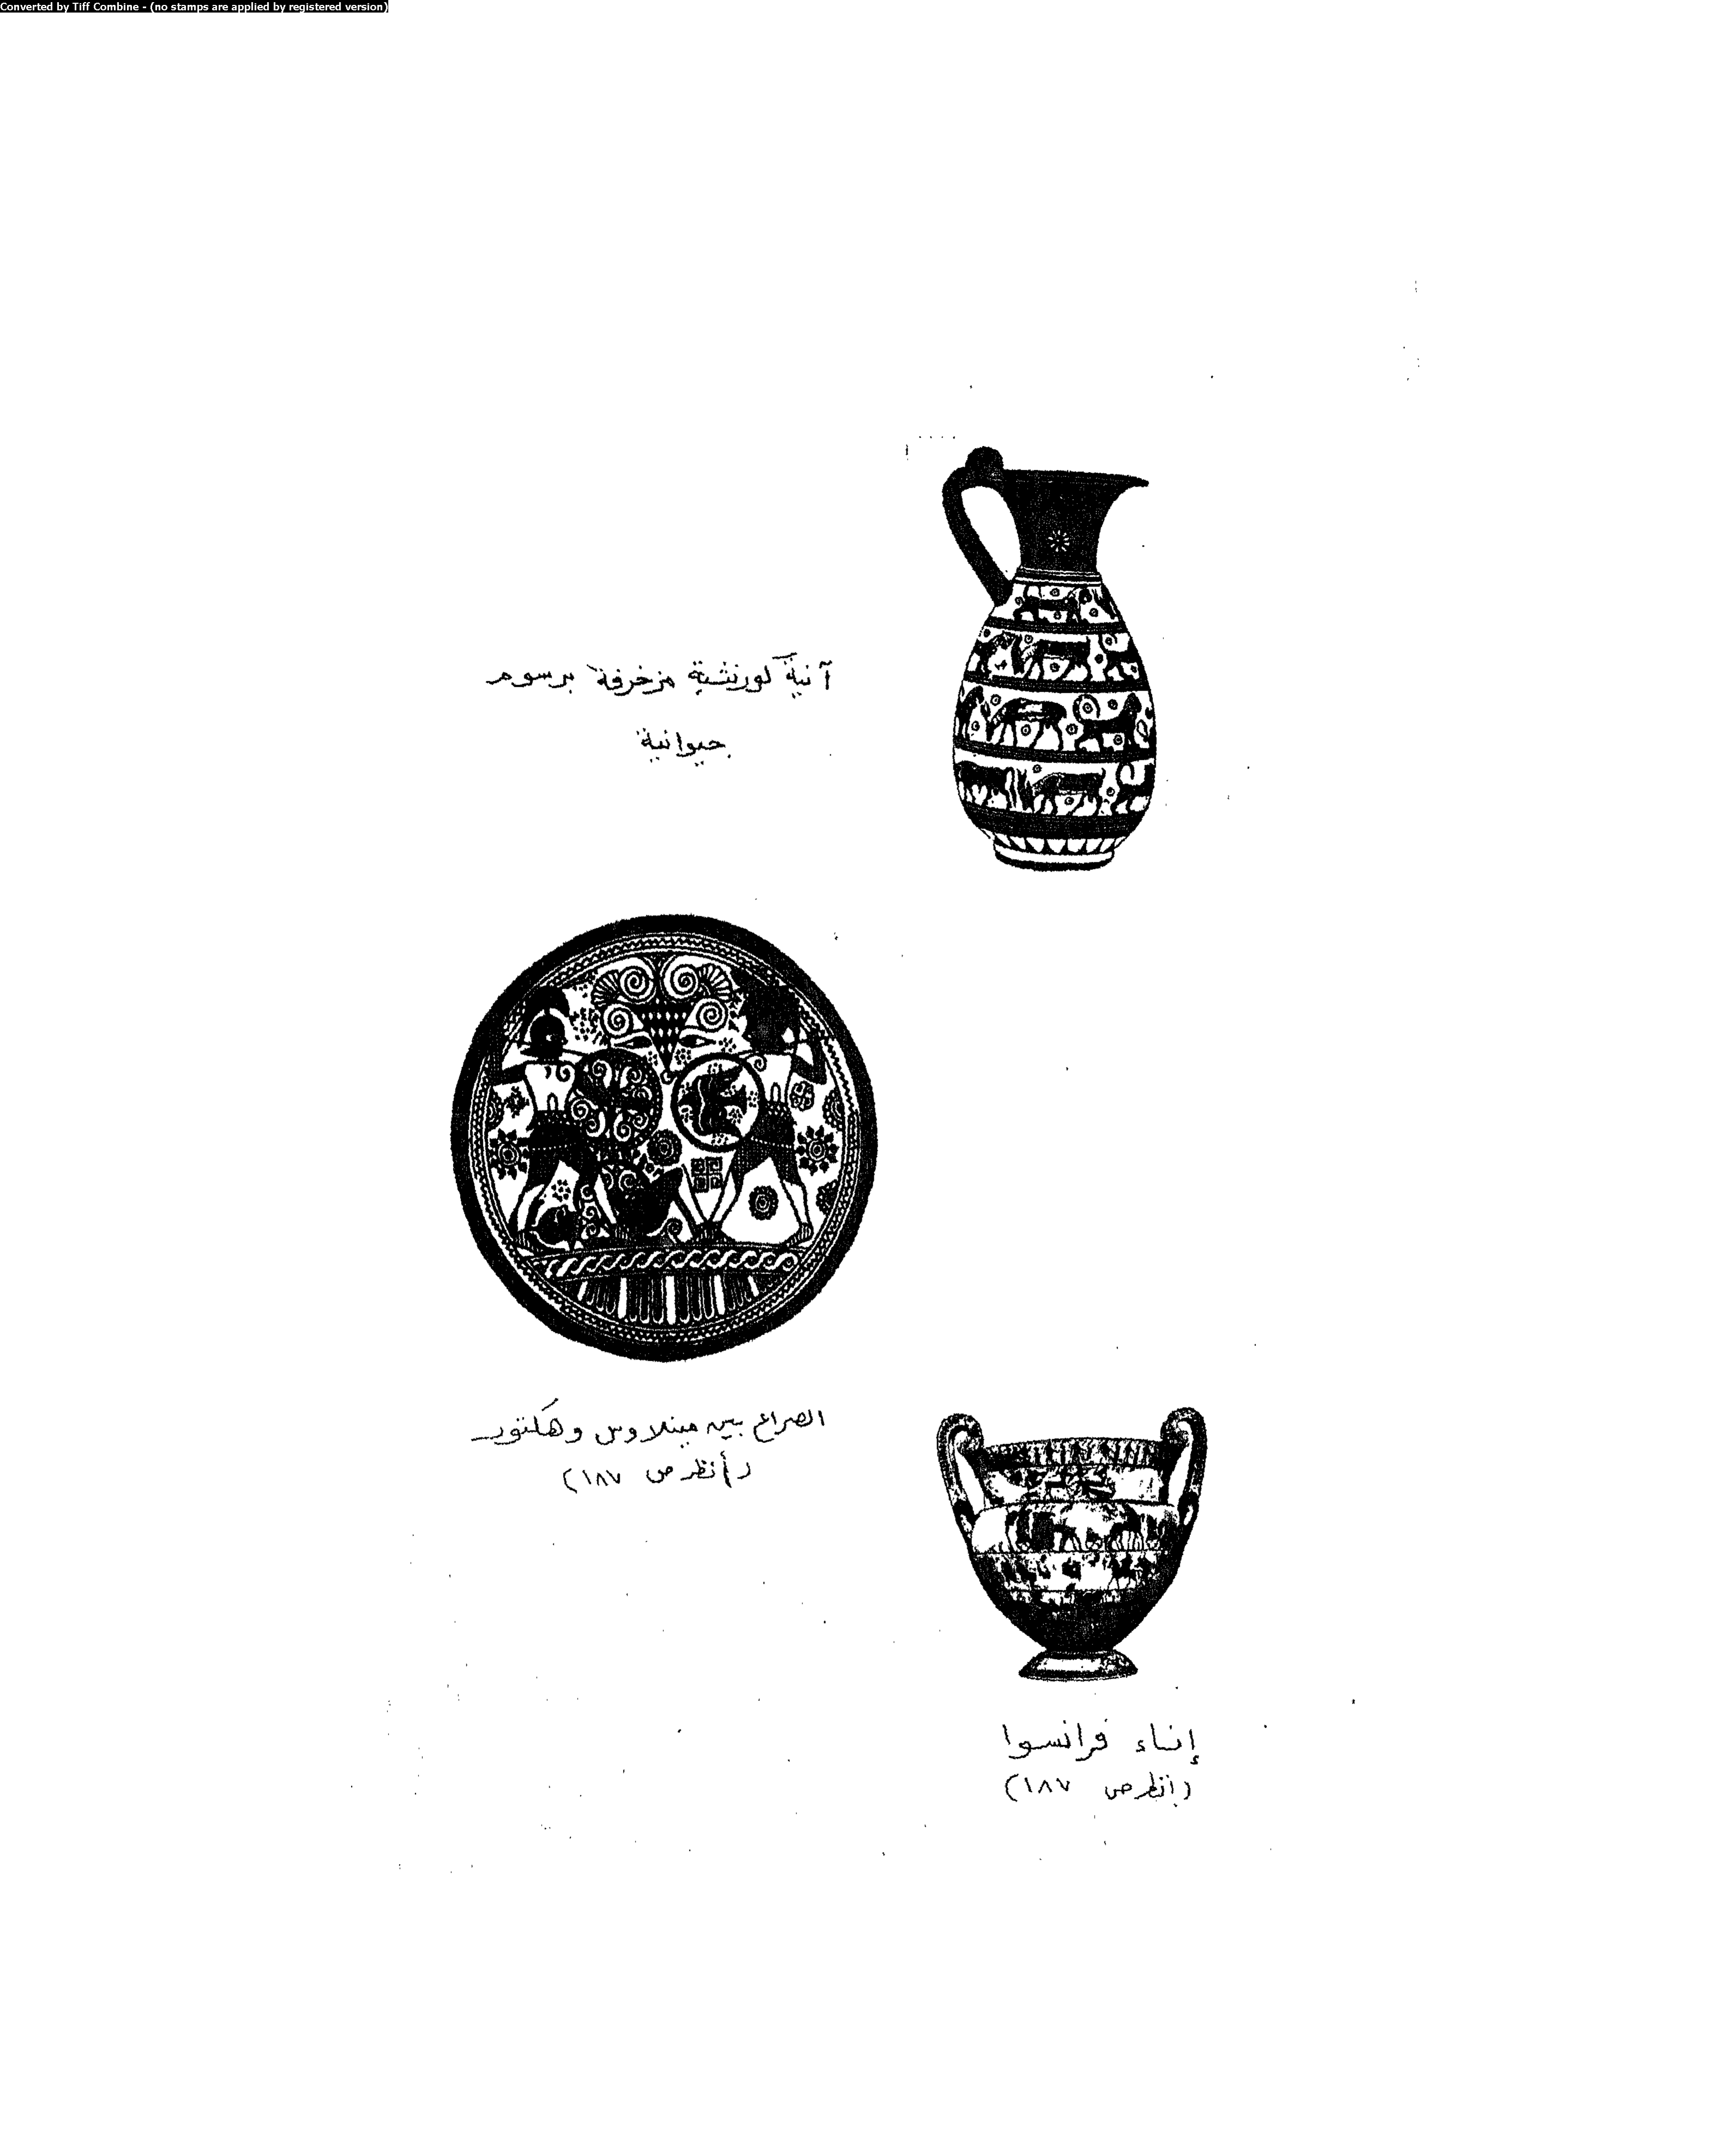 Converted by Tiff Combine - (no stamps are applied by registered version)
آنية كورنثية مزخرفة برسوم
حيوانية
الصراع بين مينلاوس وهكتور
(أنظر ص ١٨٧)
إناء فرانسوا
(أنظر ص ١٨٧)